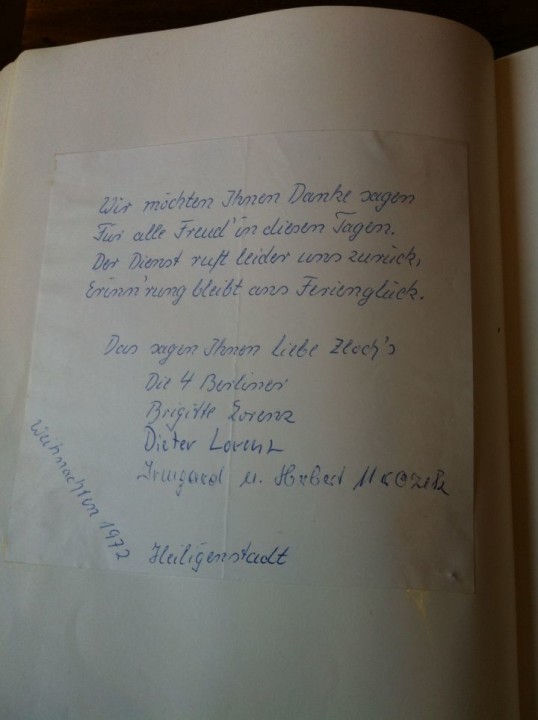 Wir möchten Ihnen Danke sagen
Für alle Freud' in diesen Tagen.
Der Dienst ruft leider uns zurück,
Erinn'rung bleibt ans Ferienglück.
Das sagen Ihnen liebe Zloch's
Die 4 Berliner
Brigitte Lorenz
Dieter Lorenz
Irmgard u. Herbert
Weihnachten 1972
Heiligenstadt